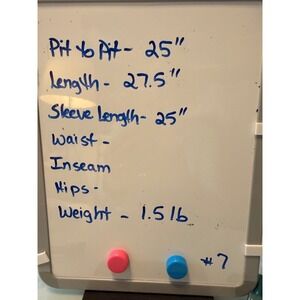 Pit to Pit - 25"
Length - 27.5"
Sleeve Length - 25"
Waist -
Inseam
Hips -
Weight - 1.5 lb
#7